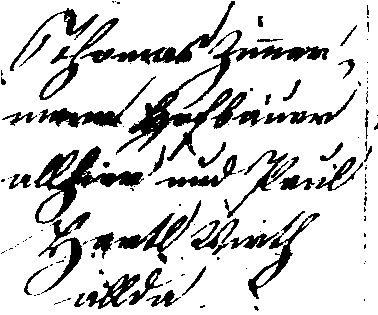 Thomas Zimer,
mann Hofbauer
allhier und Paul
Hartl Wirth
allda